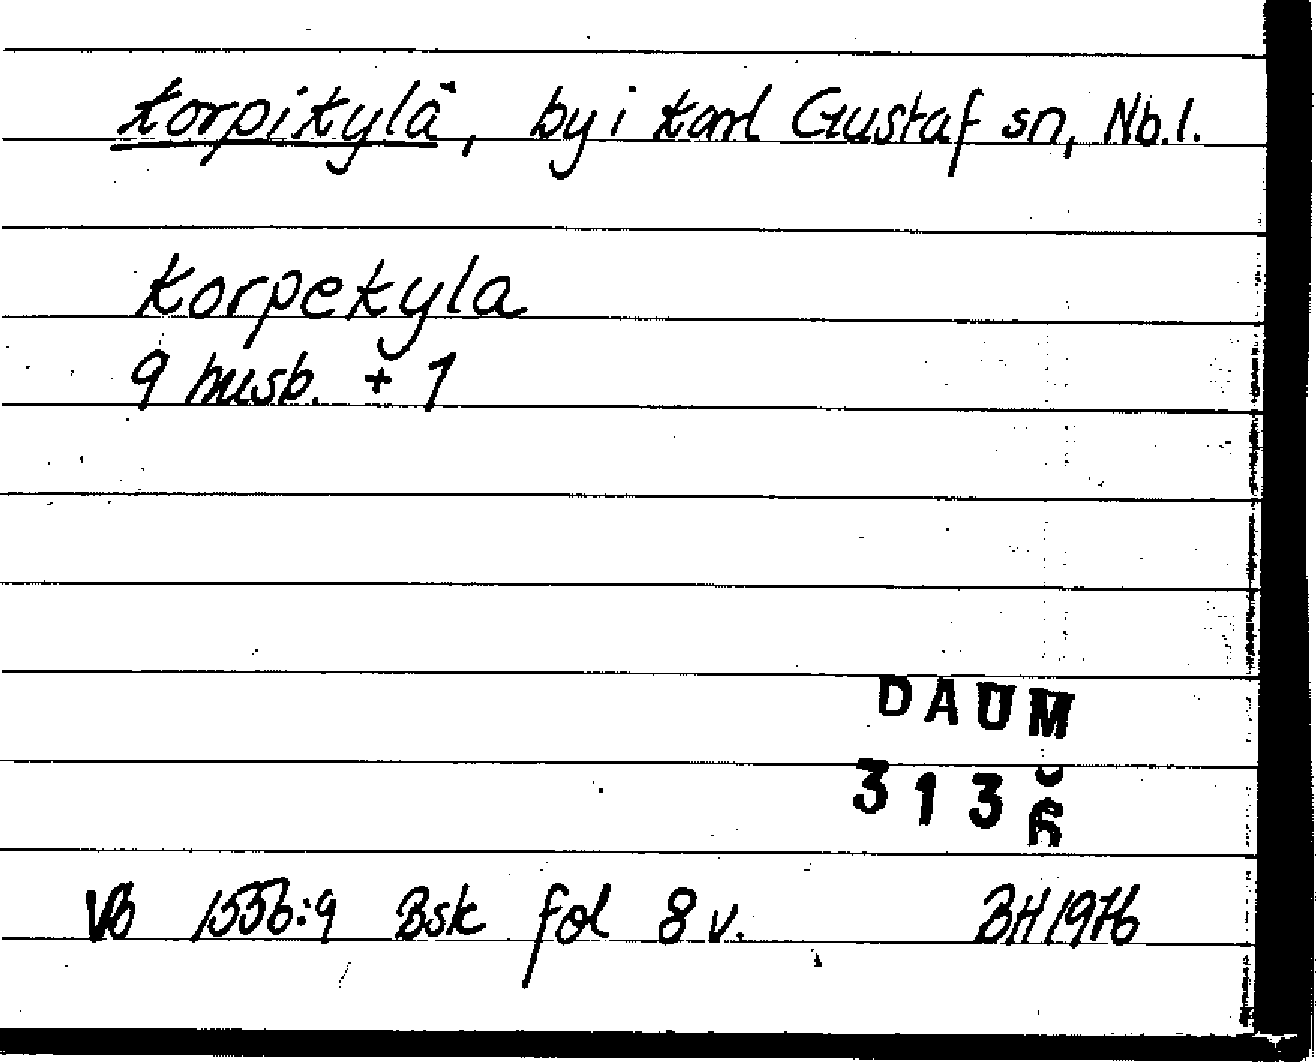 Korpikylä, by i Karl Gustaf sn, Nb.l.
Korpekyla
9 husb. + 1
DAUM
313
VB 1556:9 Bsk fol 8 v. BH 1976